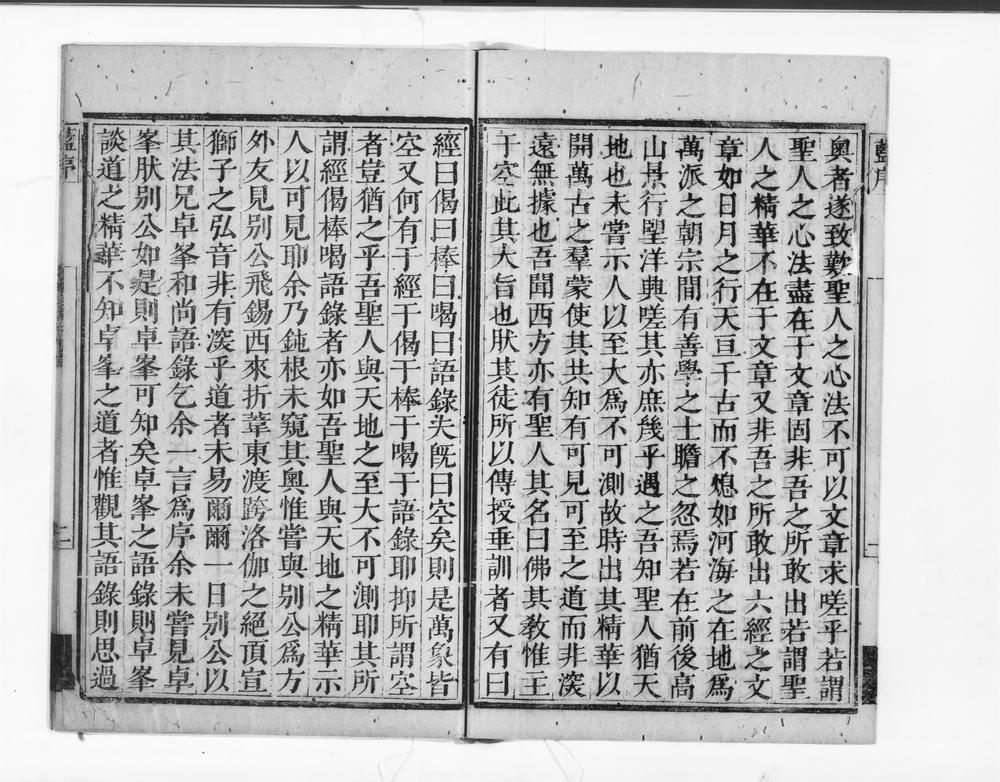 奧者遂致歎聖人之心法不可以文章求嗟乎若謂
聖人之心法盡在于文章固非吾之所敢出若謂聖
人之精華不在于文章又非吾之所敢出六經之文
章如日月之行天亘千古而不熄如河海之在地爲
萬派之朝宗間有善學之士瞻之忽焉若在前後高
山景行望洋典嗟其亦庶幾乎遇之吾知聖人猶天
地也未嘗示人以至大爲不可測故時出其精華以
開萬古之羣蒙使其共知有可見可至之道而非深
遠無據也吾聞西方亦有聖人其名曰佛其敎惟主
于空此其大旨也狀其徒所以傳授垂訓者又有曰
經曰偈曰棒曰喝曰語錄夫旣曰空矣則是萬象皆
空又何有于經于偈于棒于喝于語錄耶抑所謂空
者豈猶之乎吾聖人與天地之至大不可測耶其所
謂經偈棒喝語錄者亦如吾聖人與天地之精華示
人以可見耶余乃鈍根未窺其奧惟嘗與别公爲方
外友見别公飛錫西來折葦東渡跨洛伽之絕頂宣
獅子之弘音非有深乎道者未易爾爾一日别公以
其法兄卓峯和尚語錄乞余一言爲序余未嘗見卓
峯狀别公如是則卓峯可知矣卓峯之語錄則卓峯
談道之精華不知卓峯之道者惟觀其語錄則思過
藍序
二